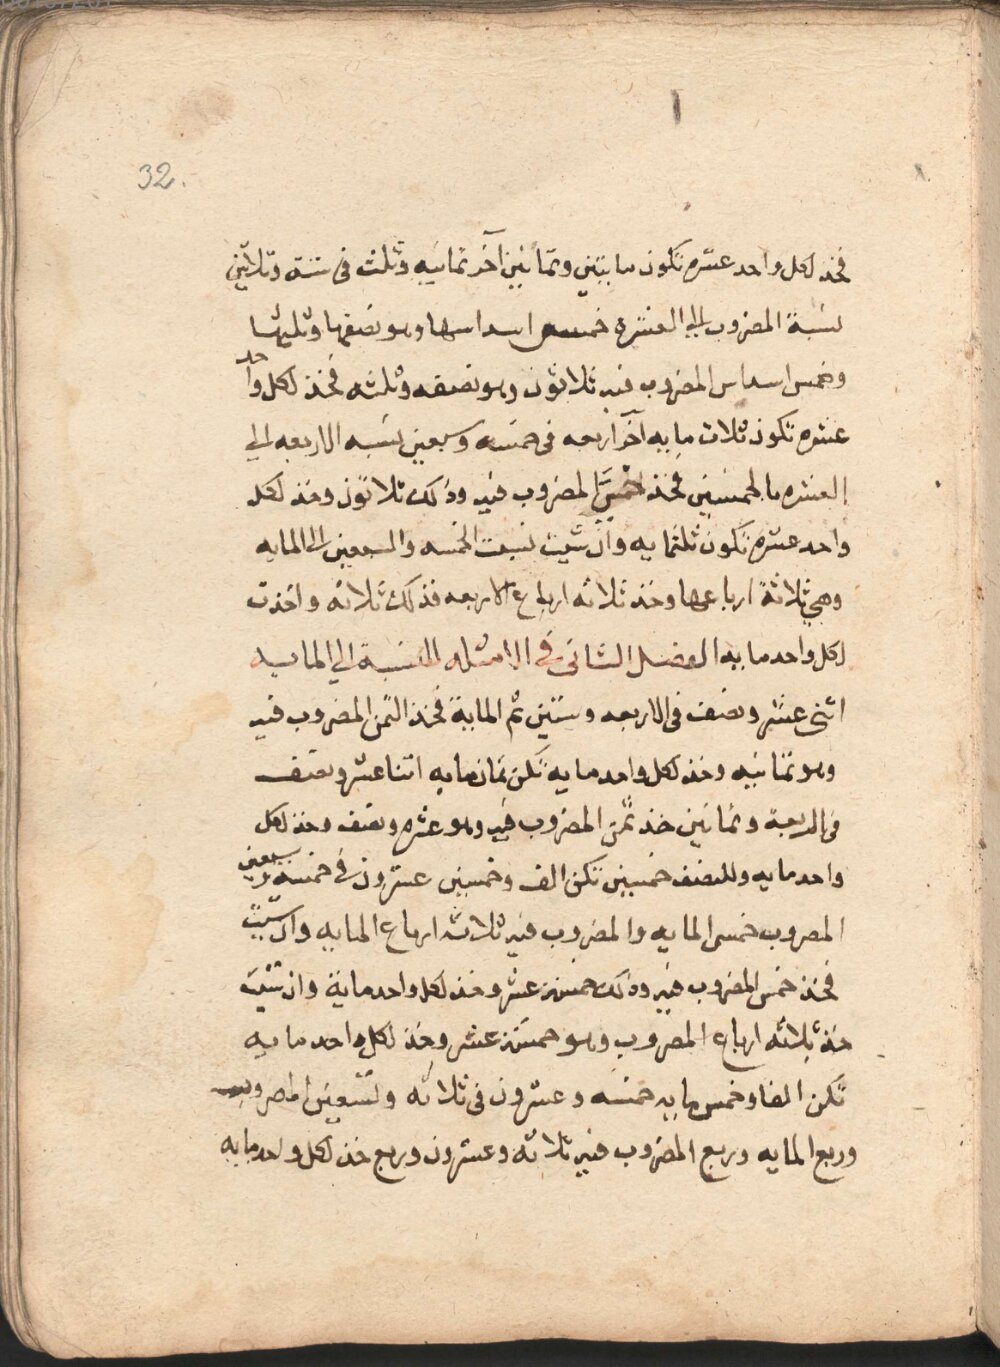 32.
فخذ لكل واحد عشره تكون مايتين وثمانين آخر ثمانيه وثلث في ستة وثلاثين
نسبة المضروب الى العشره خمسه اسداسها وهو نصفها وثلثها
وخمس اسداس المضروب فيه ثلاثون وهو نصفه وثلثه فخذ لكل واحد
عشره تكون ثلاث مايه آخر اربعه في خمسه وسبعين نسبه الاربعه الى
العشره بالخمسين فخذ خمسي المضروب فيه وذلك ثلاثون وخذ لكل
واحد عشره تكون ثلثمايه وان شيت نسبت الخمسه والسبعين الى المايه
وهي ثلاثة ارباعها وخذ ثلاثه ارباع الاربعه فذلك ثلاثه واخذت
لكل واحد مايه الفصل الثاني في الامثله النسبة الى المايه
اثني عشر ونصف في الاربعه وستين ثم الماية فخذ الثمن المضروب فيه
وهو ثمانيه وخذ لكل واحد مايه تكن ثمان مايه اثنا عشر ونصف
في اربعة وثمانين خذ ثمن المضروب فيه وهو عشره ونصف وخذ لكل
واحد مايه وللنصف خمسين تكن الف وخمسين عشرون في خمسة وسبعين
المضروب خمس المايه والمضروب فيه ثلاث ارباع المايه وان شيت
فخذ خمس المضروب فيه وذلك خمسة عشر وخذ لكل واحد ماية وان شيت
خذ ثلاثه ارباع المضروب وهو خمسة عشر وخذ لكل واحد مايه
تكن الفا وخمس مايه خمسه وعشرون في ثلاثه وتسعين المضروب
وربع المايه وربع المضروب فيه ثلاثه وعشرون وربع خذ لكل واحد مايه